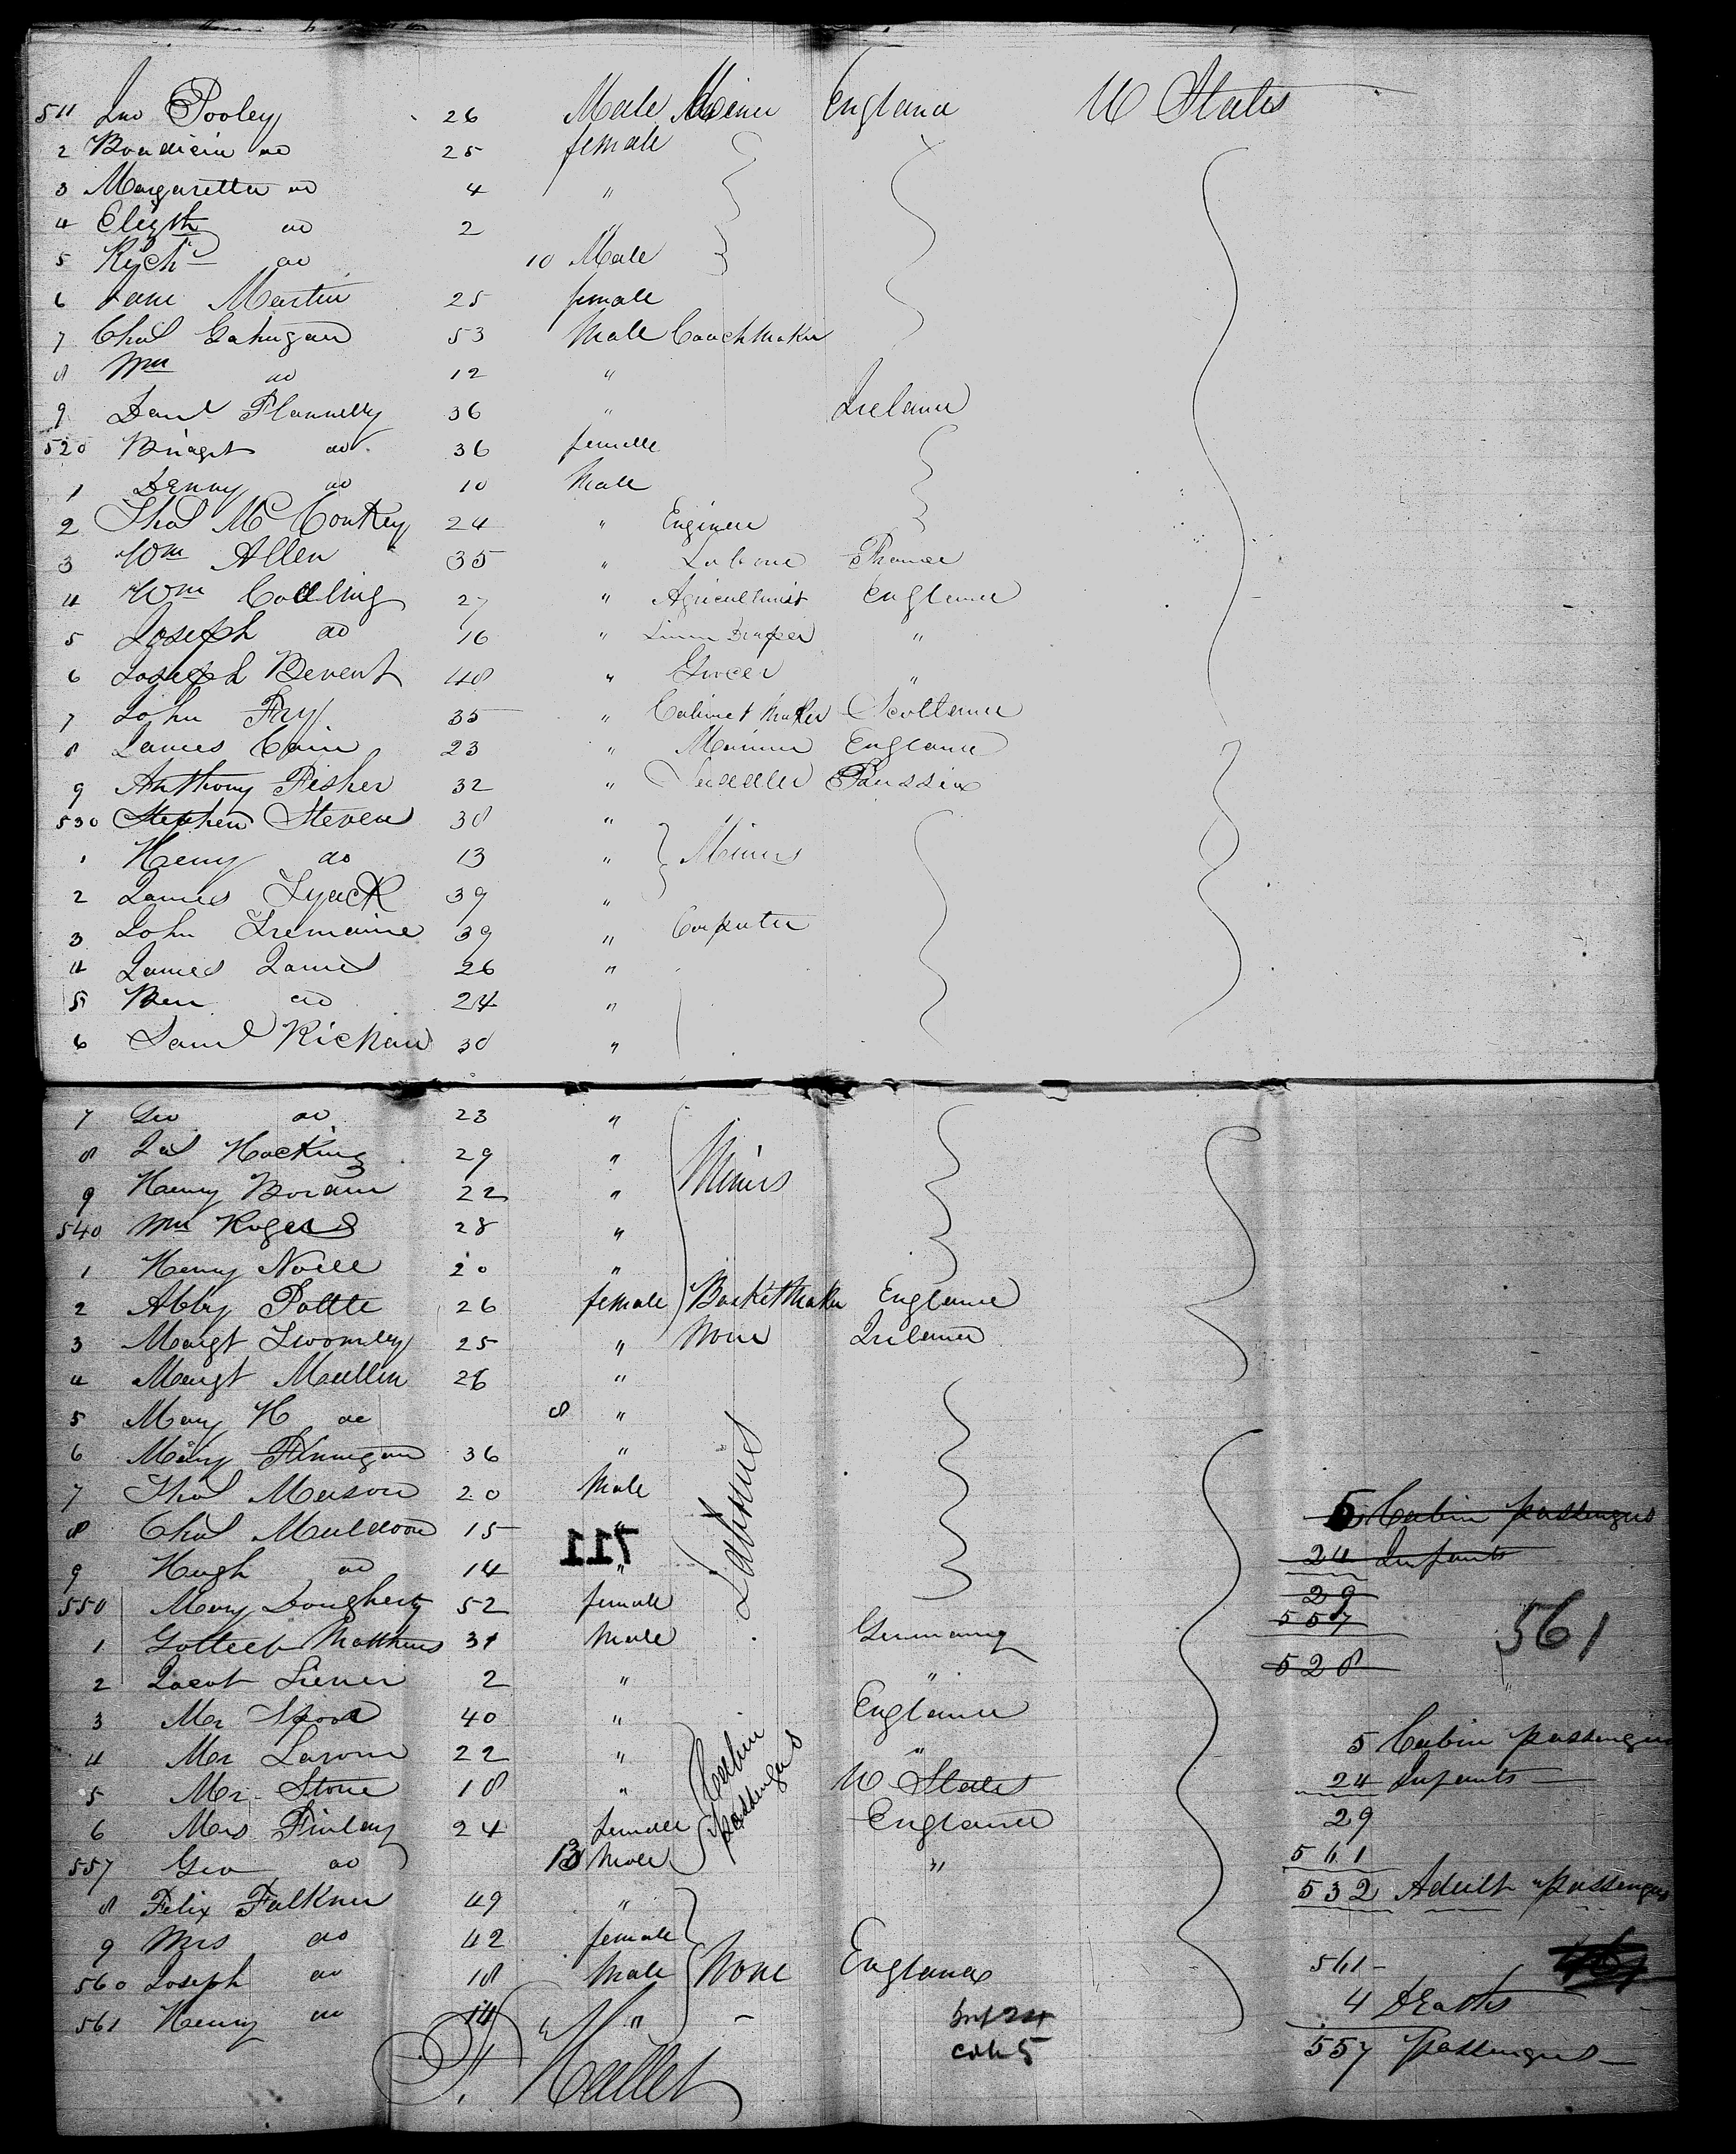 511 Jno Pooley 26 Male Miner England U States
2 Boadicia do 25 female
3 Margaretta do 4 "
4 Elizth do 2
5 Richd do 10 Male
6 Jane Martin 25 female
7 Chas Gahagan 53 Male Coachmaker
8 Wm do 12 "
9 Danl Flannelly 36 " Ireland
520 Bridget do 36 female
1 Denny do 10 Male
2 Thos McConkey 24 " Engineer
3 Wm Allen 35 " Laborer France
4 Wm Colling 27 " Agriculturist England
5 Joseph do 16 " Linen Draper "
6 Joseph Bevent 48 " Grocer "
7 John Fry 35 " Cabinet Maker Scotland
8 James Cain 23 " Mariner England
9 Anthony Fisher 32 " Saddler Prussia
530 Stephen Steven 38 "
1 Henry do 13 " Miners
2 James Lyack 39 "
3 John Tremaine 39 " Carpenter
4 James James 26 "
5 Ben do 24 "
6 Saml Richard 30 "
7 Geo do 23 "
8 Jas Hocking 29 " Miners
9 Henry Boram 22 "
540 Wm Rogers 28 "
1 Henry Noell 20 "
2 Abby Pottle 26 female BasketMaker England
3 Margt Twomley 25 " None Ireland
4 Margt Mullin 26 "
5 Mary H do 8 "
6 Mary Finnigan 36 "
7 Thos Mason 20 Male Laborers
8 Chas Muldoon 15 "
711
9 Hugh do 14 "
550 Mary Dougherty 52 female
1 Gottleib Matthews 31 Male Germany
2 Jacob Siener 2 "
3 Mr Spoor 40 " England
4 Mr Larom 22 " Cabin passengers "
5 Mr Stone 18 " U States
6 Mrs Finlay 24 female England
557 Geo do 13 Male "
8 Felix Falkner 49 "
9 Mrs do 42 female
560 Joseph do 18 Male None England
561 Henry do 14 "
F. Hallet
inf 24
cab 5
5 Cabin passengers
24 Infants
29
557
528
561
5 Cabin passengers
24 Infants
29
561
532 Adult passengers
561
4 Deaths
557 passengers